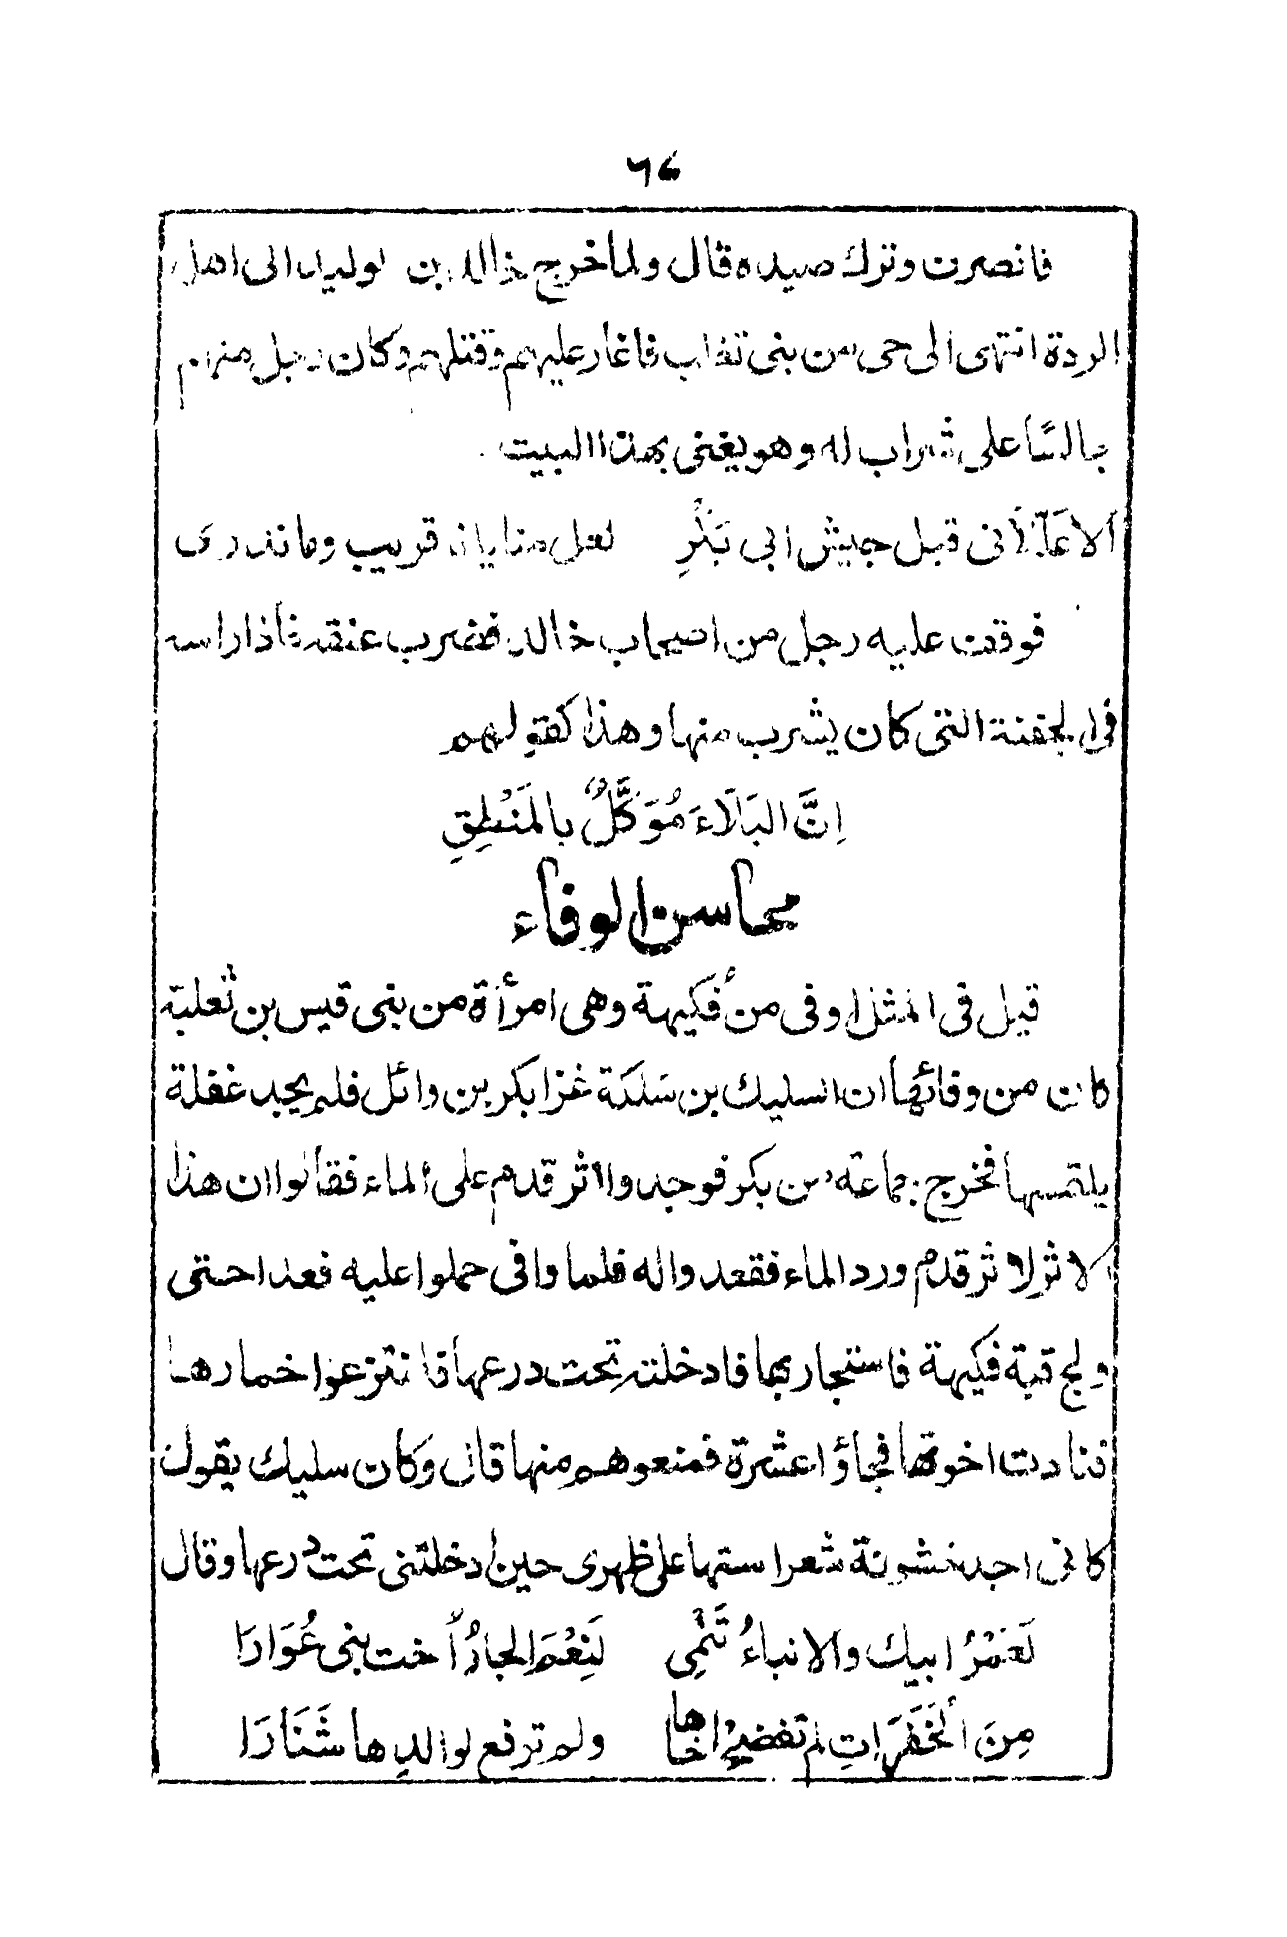 ٦٤
فانصرف وترك صيده قال ولما خرج خالد بن الوليد الى اهل
الردة انتهى الى حى من بنى تغلب فاغار عليهم وقتلهم وكان رجل منهم
جالسًا على شراب له وهو يغنى بهذا البيت
ألا عَلّلانى قبل جيش ابى بَكْرِ لعل منايانا قريب وما ندرى
فوقف عليه رجل من اصحاب خالد فضرب عنقه فأذا راسه
فى الجفنة التى كان يشرب منها وهذا كقولهم
اِنَّ البَلَاءَ مُوَكَّلٌ بالمَنْطِقِ
محاسن الوفاء
قيل فى المثل اوفى من فُكيهة وهى امرأة من بنى قيس بن ثعلبة
كان من وفائها ان السليك بن سَلَكة غزا بكر بن وائل فلم يجد غفلة
يلتمسها فخرج جماعة من بكر فوجدوا أثر قدم على ألماء فقالوا ان هذا
الاثر لاثر قدم ورد الماء فقعدوا له فلما وافى حملوا عليه فعدا حتى
ولج قبة فكيهة فاستجار بها فادخلته تحت درعها فانتزعوا خمارها
فنادت اخوتها فجاؤا عشرة فمنعوهم منها قال وكان سليك يقول
كانى اجد خشونة شعر استها على ظهرى حين أدخلتنى تحت درعها وقال
لَعَمْرُ ابيك والانباءُ تَنْمِى لَنِعْمَ الجارُ أخت بنى عُوَارَا
مِنَ ألخَفَرَاتِ لم تفضحْ اخاها ولم ترفع لوالدِها شَنَارَا